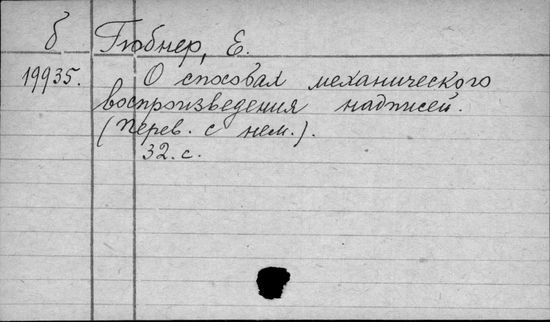 б Гюбнер, Е.
19935. О способах механического
воспроизведения надписей.
(Перев. с нем.).
32. с.